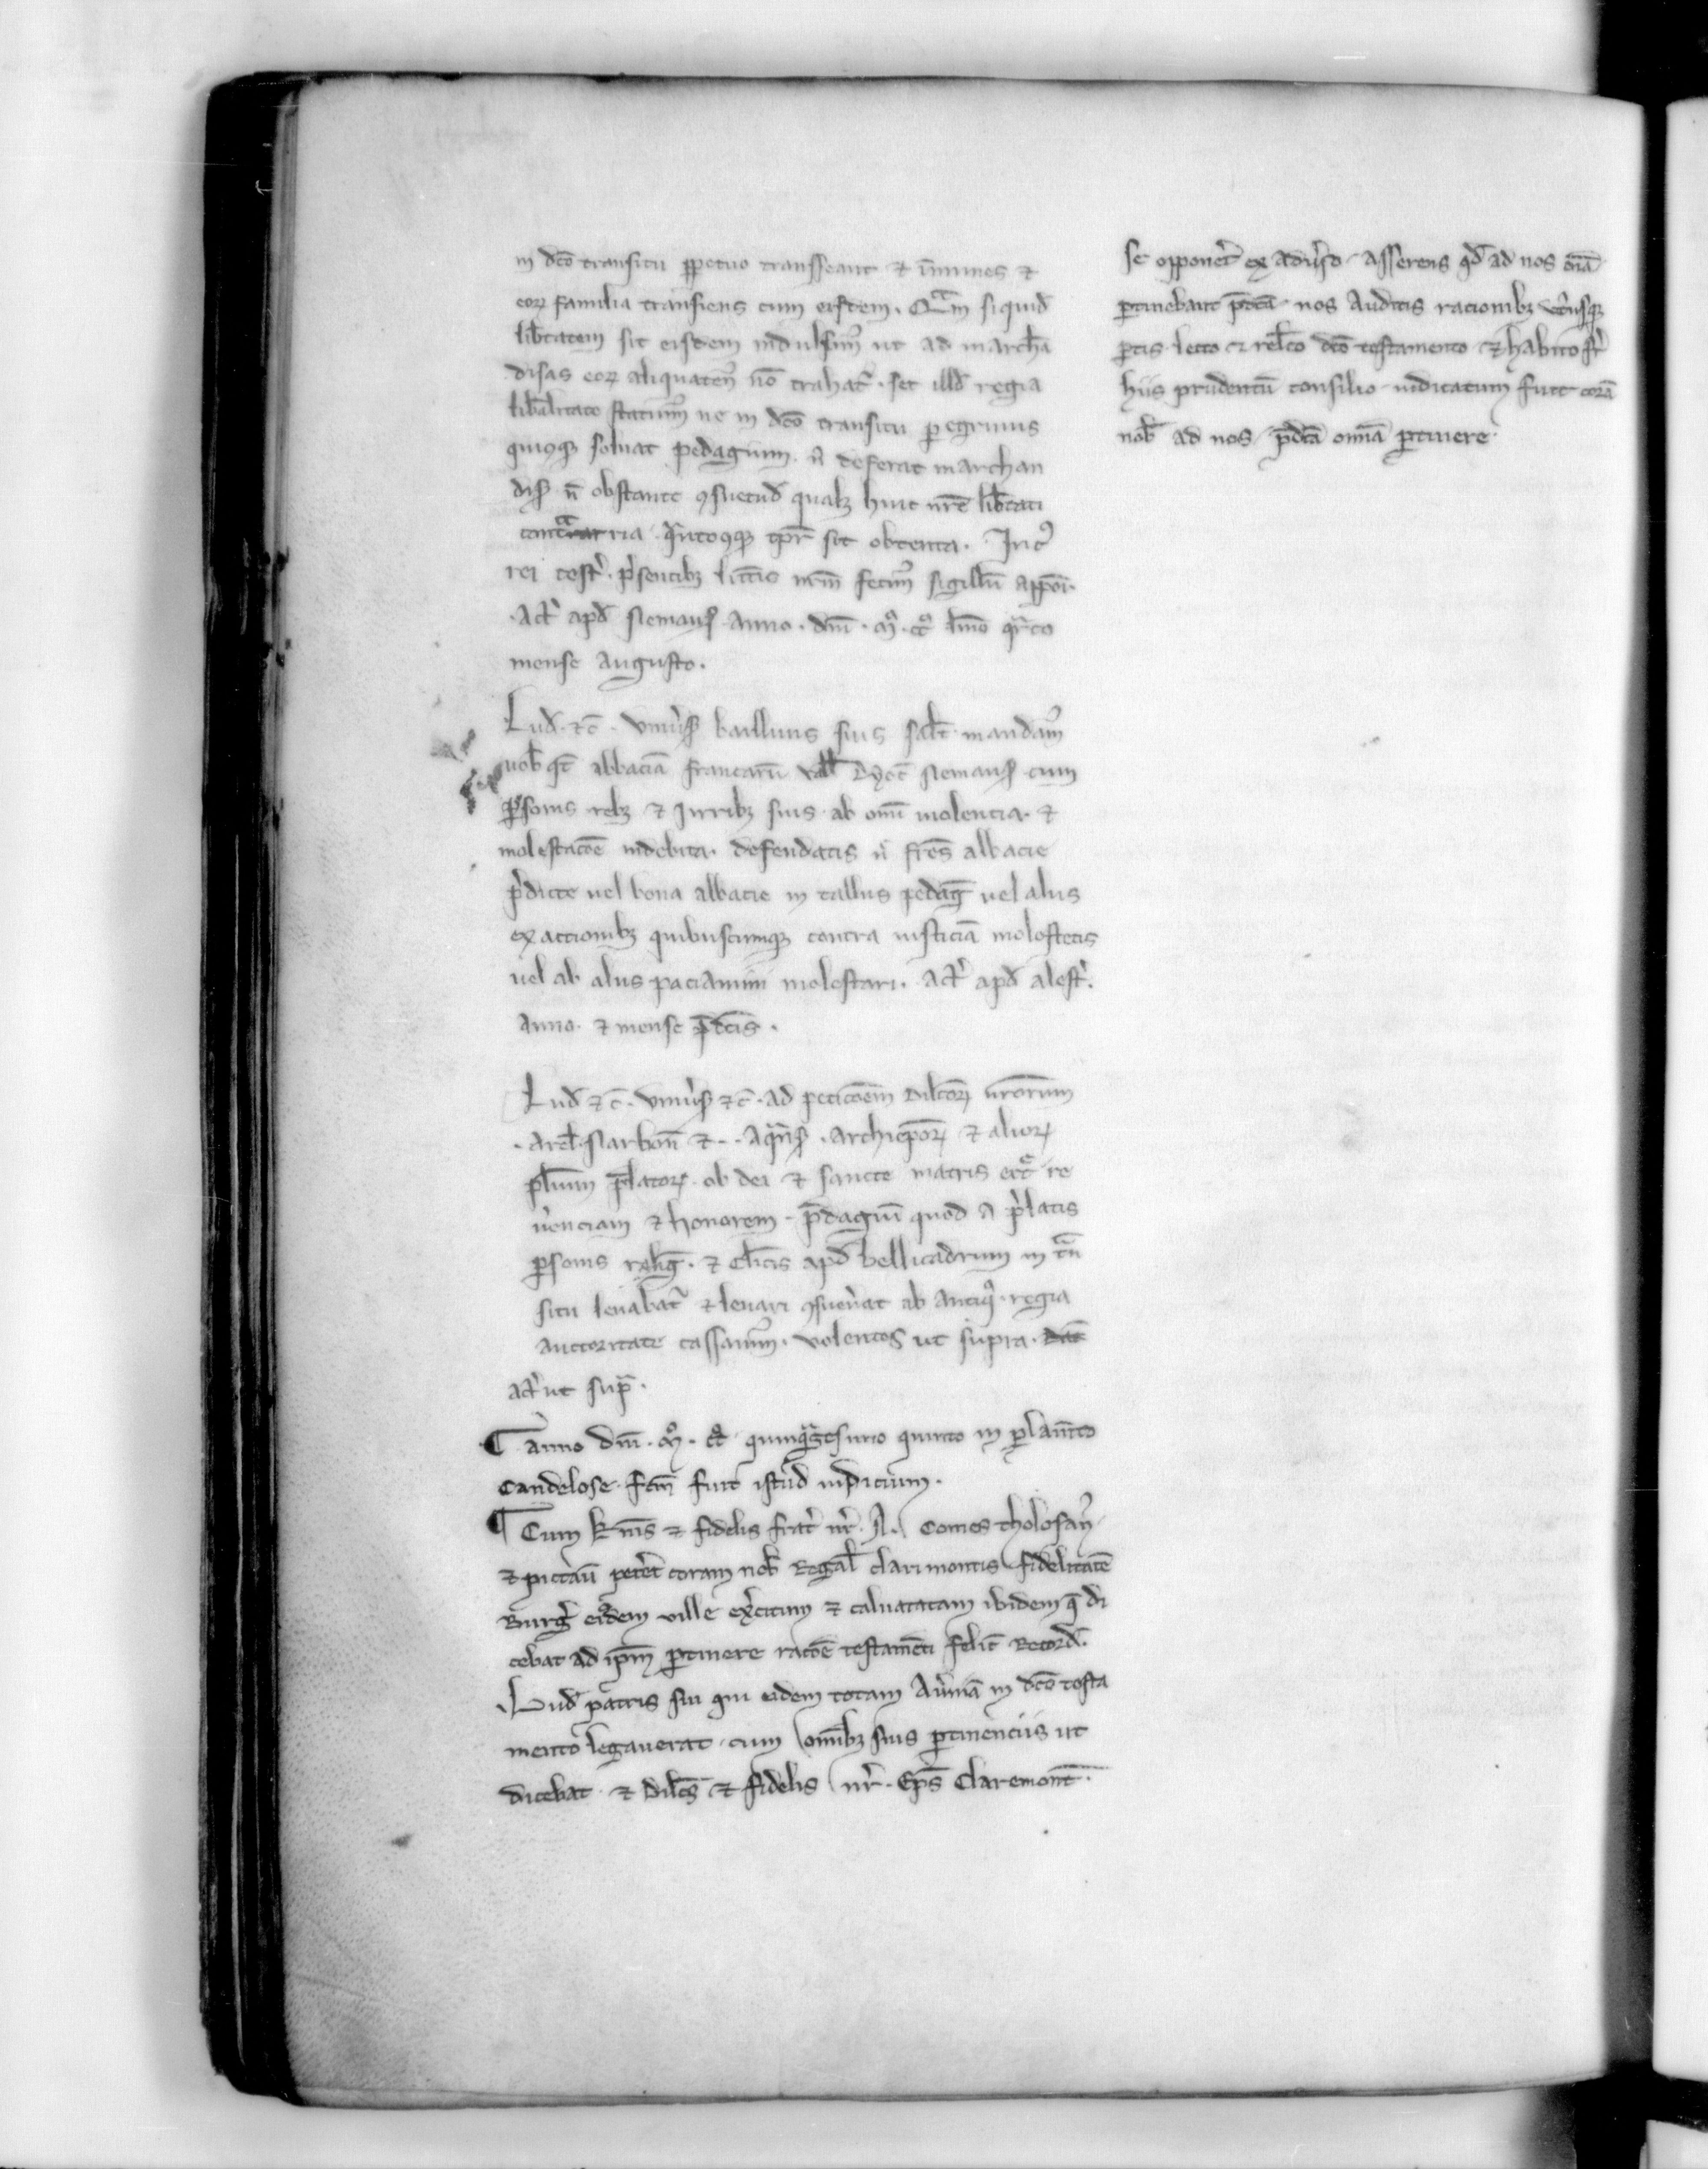 in dco transitu ꝑpetuo transseant ⁊ inmunes ⁊
eoꝝ familia transiens cum eisdem. Qᵃm siquid̄
lib̄tatem sic eisdem indulsimꝰ ut ad march̄a
disas eoꝝ aliquatenꝰ nō trahat᷑. set illd̄ regia
lib̄alitate statuimꝰ ne in dc̄o transitu peregrinus
quicqꝫ soluat pedagium. n̄ deferat marchan
dis̄ n̄ obstante ꝯsuetud̄ qualꝫ huic nr̄e lib̄tati
contᵃria q̄ntocūqꝫ tpr̄ sit obtenta. In cꝰ
rei test᷑. p᷑sentibꝫ litt̄is nr̄m fecimꝰ sigillū appōi.
.Act᷑ apd̄ Nemaus̄ anno. dn̄i. mᵒ. ccᵒ lmo qᵃrto
mense augusto.
Lud̄. ⁊c̄. vniu᷑s̄ bailliuis suis sal̄t. mandamꝰ
uob̄ qͭ abbaciā francarū vall̄ dyoc̄ Nemaus̄ cum
ꝑsonis rebꝫ ⁊ Iuribꝫ suis. ab omī uiolencia. ⁊
molestacōe indebita. defendatis n̄ fr̄es abbacie
p᷑dicte uel bona abbacie in talliis pedaḡ uel aliis
exaccionibꝫ quibuscumqꝫ contra iusticiā molestetis
uel ab aliis paciamini molestari. act᷑ apd̄ alest᷑.
anno. ⁊ mense p̄dc̄is.
Lud̄ ⁊c̄. vniu᷑s̄ ⁊c̄. ad peticōem dilc̄oꝝ nr̄orum
.arel̄. Narbon̄ ⁊.. aqn̄s̄. archiep̄oꝝ ⁊ alioꝝ
pl̄ium p̄latoꝝ. ob dei ⁊ sancte matris eccᵉ re
u᷑enciam ⁊ honorem. pedagiū quod a p᷑latis
ꝑsonis reliḡ. ⁊ cl̄icis apd̄ bellicadrum in tᵃn
situ leuabat᷑ ⁊ leuari ꝯsueu᷑at ab antiqᵒ. regia
auctoritate cassauimꝰ. volentes ut supra. dat̄
act᷑ ut supᵃ.
¶ anno dn̄i. mᵒ. ccᵒ quinqᵃgesimo quinto in ꝑlam̄to
Candelose. fcm̄ fuit istud iudicium.
¶ Cum k̄mꝰ ⁊ fidelis frat᷑ nr̄. A. Comes tholosan᷑
⁊ pictau̅ pet᷑et coram nob̄ Regal̄ clarimontis fidelitatē
Burg᷑ eiꝰdem ville ex᷑citum ⁊ caluatatam ibidem q̄ di
cebat ad ip̄m ꝑtinere racōe testamēti felic̄ Record̄.
Lud̄ patris sui qui eidem totam Au᷑niā in dc̄o testa
mento legauerat. cum omībꝫ suis ꝑtinenciis ut
dicebat. ⁊ dilc̄s ⁊ fidelis nr̄. Ep̄s Claremont̄.
se opponet᷑ ex adu᷑so. asserens qd̄ ad nos oīa
ꝑtinebant p̄dc̄a. nos auditis racionibꝫ vt᷑iusqꝫ
ꝑtis. lecto ⁊ rel̄to dc̄o testamento. ⁊ habito sr᷑
hiis prudentū consilio. iudicatum fuit corā
nob̄ ad nos. p̄dc̄a omīa ꝑtinere.